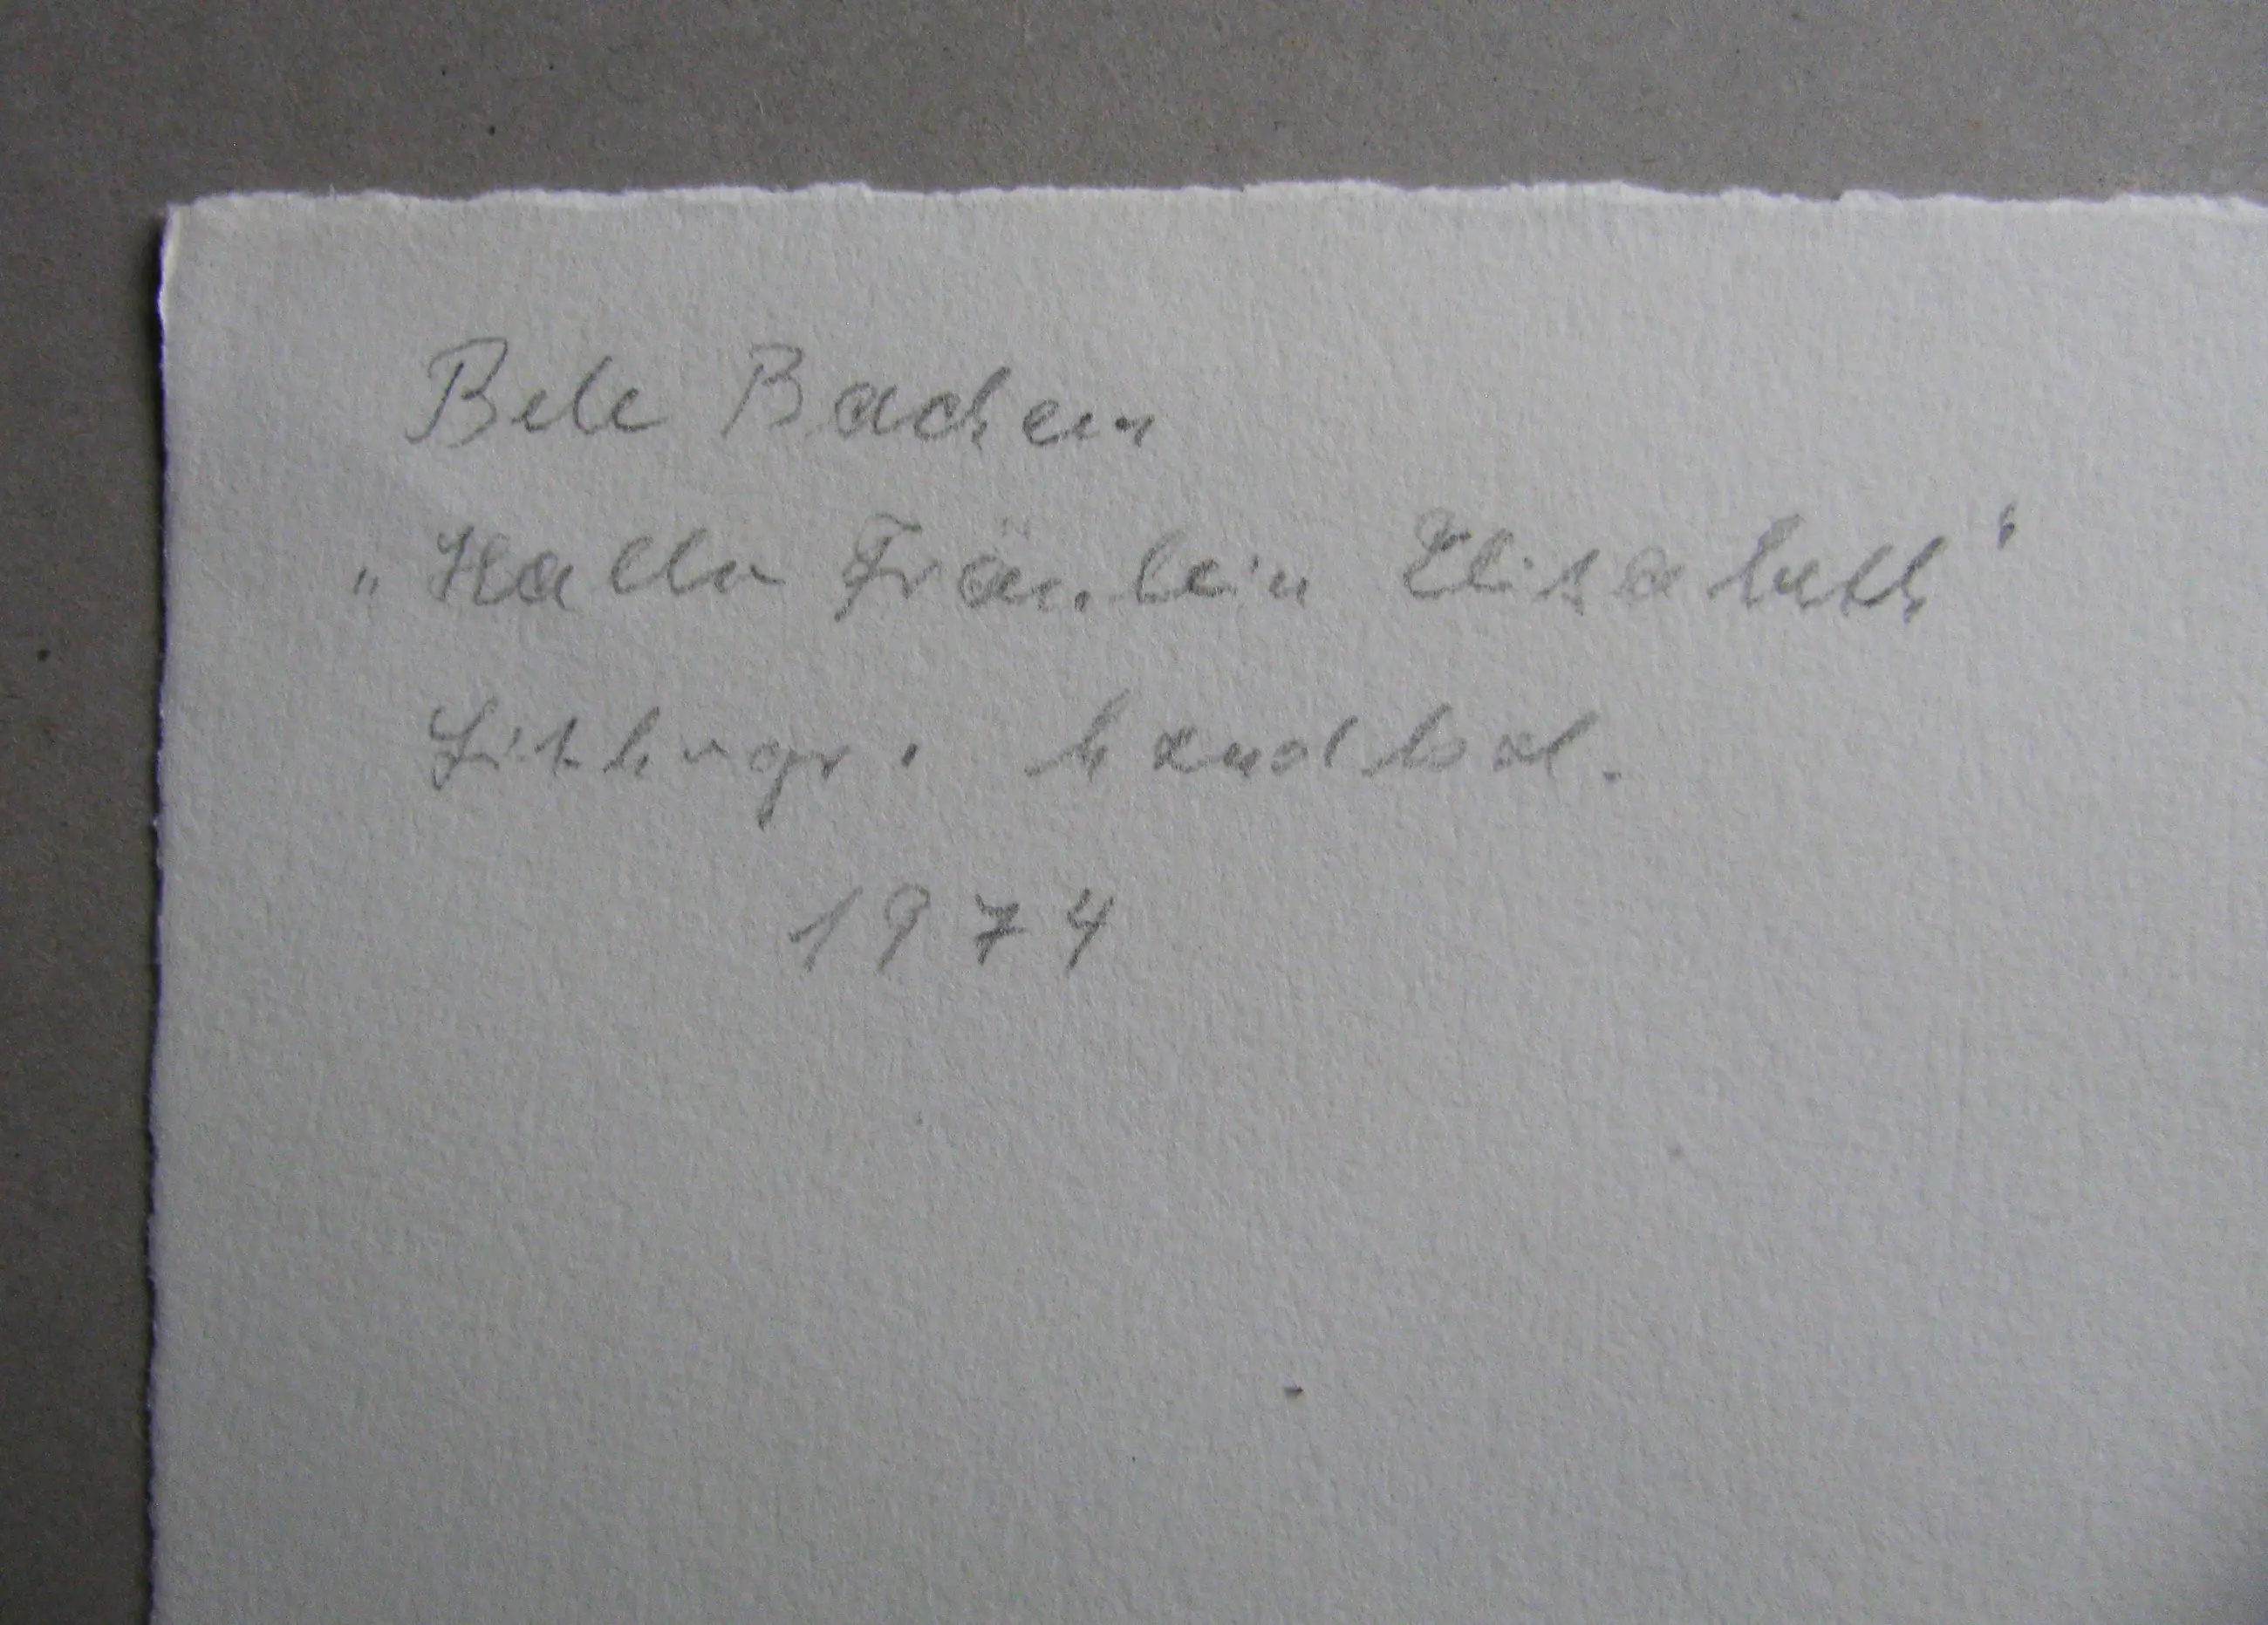 Bele Bachem
„Hallo Fräulein Elisabeth“
Lithogr. handkol.
1974